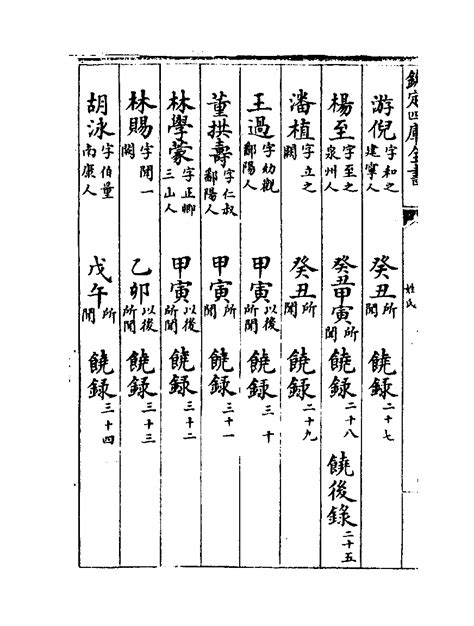 欽定四庫全書
姓氏
游倪字和之建寧人 癸丑所聞 饒錄二十七
楊至字至之泉州人 癸丑甲寅所聞 饒錄二十八 饒後錄二十五
潘植字立之闕 癸丑所聞 饒錄二十九
王過字幼觀鄱陽人 甲寅以後所聞 饒錄三十
董拱壽字仁叔鄱陽人 甲寅所聞 饒錄三十一
林學蒙字正卿三山人 甲寅以後所聞 饒錄三十二
林賜字聞一闕 乙卯以後所聞 饒錄三十三
胡泳字伯量南康人 戊午所聞 饒錄三十四